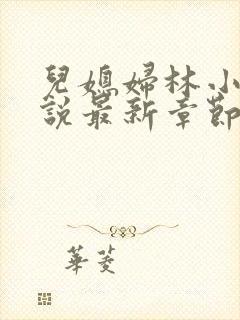 兒媳婦林小
說最新章節
華菱